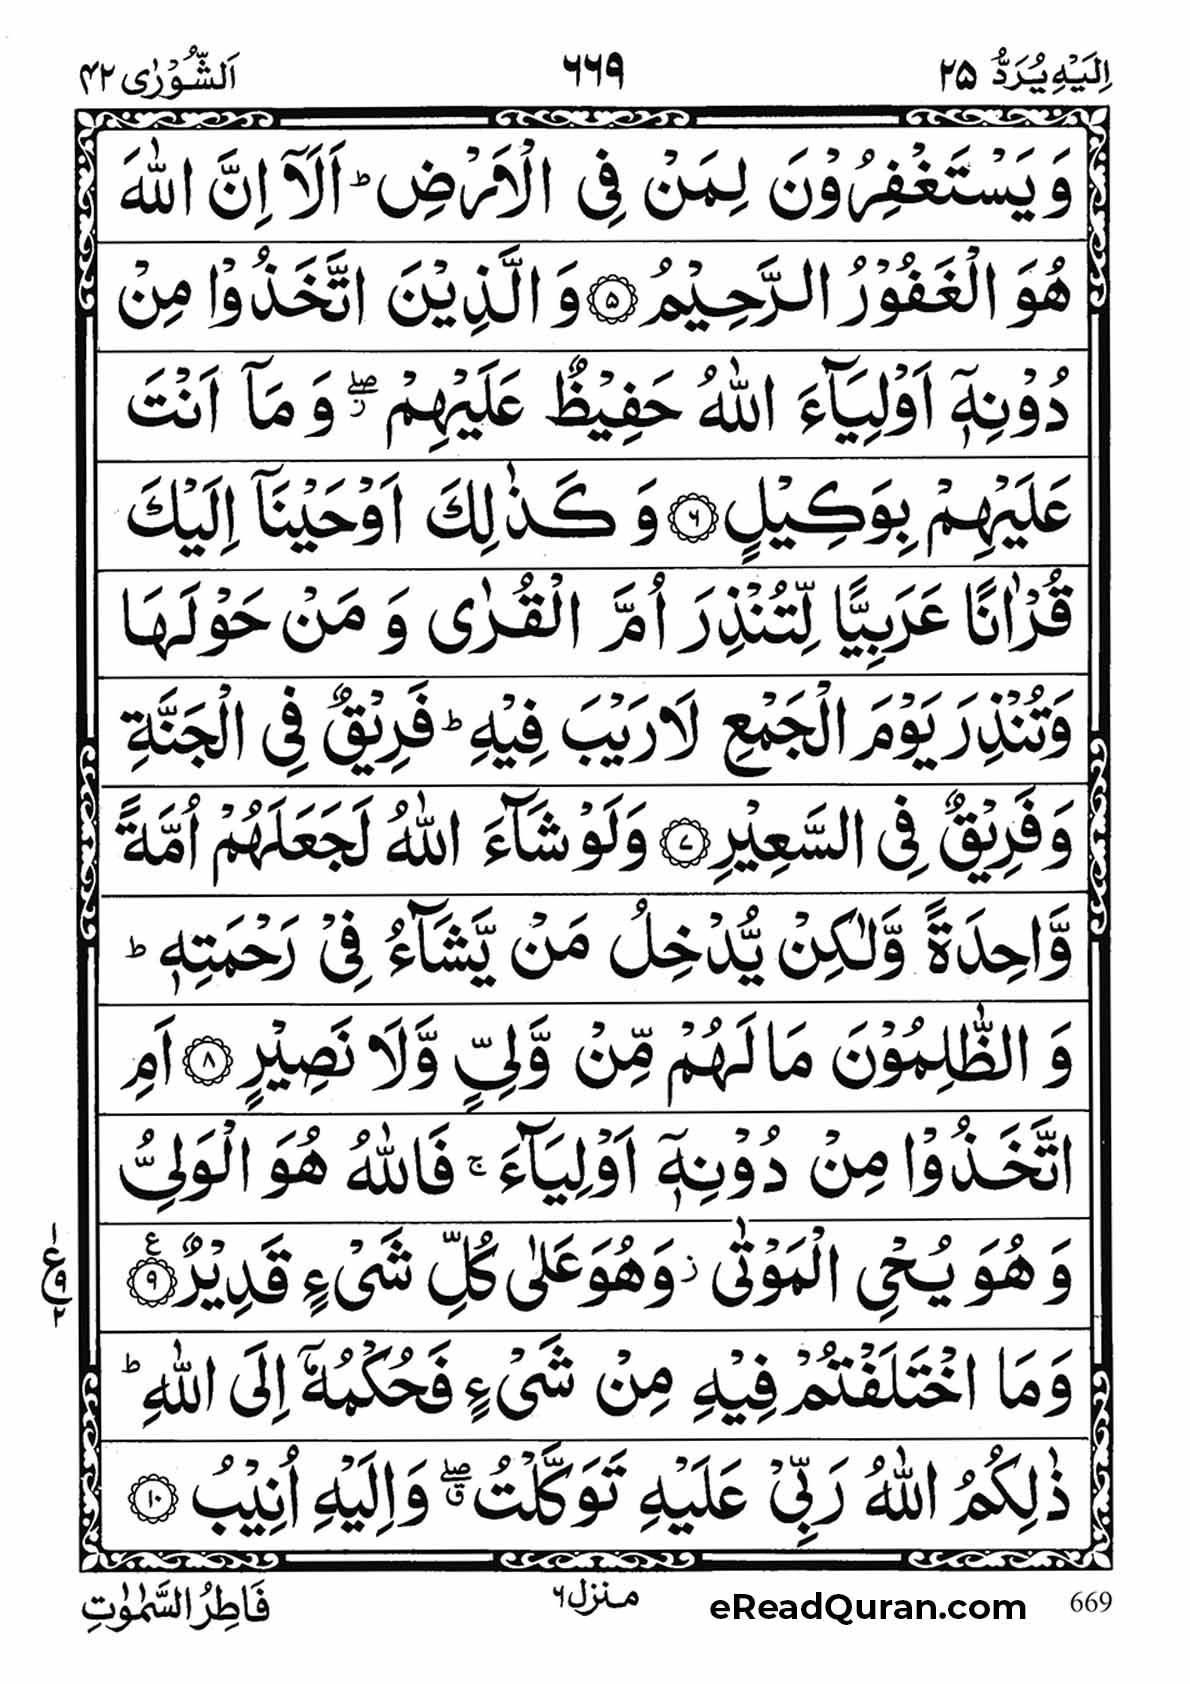 اِلَيْهِ يُرَدُّ ٢٥ ٦٦٩ اَلشُّوْرٰى ٤٢
وَ يَسْتَغْفِرُوْنَ لِمَنْ فِى الْاَرْضِ ؕ اَلَاۤ اِنَّ اللّٰهَ
هُوَ الْغَفُوْرُ الرَّحِيْمُ ۝۵ وَ الَّذِيْنَ اتَّخَذُوْا مِنْ
دُوْنِهٖۤ اَوْلِيَآءَ اللّٰهُ حَفِيْظٌ عَلَيْهِمْ ۖؗ وَ مَاۤ اَنْتَ
عَلَيْهِمْ بِوَكِيْلٍ ۝۶ وَ كَذٰلِكَ اَوْحَيْنَاۤ اِلَيْكَ
قُرْاٰنًا عَرَبِيًّا لِّتُنْذِرَ اُمَّ الْقُرٰى وَ مَنْ حَوْلَهَا
وَتُنْذِرَ يَوْمَ الْجَمْعِ لَا رَيْبَ فِيْهِ ؕ فَرِيْقٌ فِى الْجَنَّةِ
وَ فَرِيْقٌ فِى السَّعِيْرِ ۝۷ وَلَوْ شَآءَ اللّٰهُ لَجَعَلَهُمْ اُمَّةً
وَّاحِدَةً وَّلٰكِنْ يُّدْخِلُ مَنْ يَّشَآءُ فِىْ رَحْمَتِهٖ ؕ
وَ الظّٰلِمُوْنَ مَا لَهُمْ مِّنْ وَّلِىٍّ وَّلَا نَصِيْرٍ ۝۸ اَمِ
اتَّخَذُوْا مِنْ دُوْنِهٖۤ اَوْلِيَآءَ ۚ فَاللّٰهُ هُوَ الْوَلِىُّ
وَ هُوَ يُحْىِ الْمَوْتٰى ؗ وَهُوَ عَلٰى كُلِّ شَىْءٍ قَدِيْرٌ ۝۹ ع
١ ع ٩ ٢
وَمَا اخْتَلَفْتُمْ فِيْهِ مِنْ شَىْءٍ فَحُكْمُهٗۤ اِلَى اللّٰهِ ؕ
ذٰلِكُمُ اللّٰهُ رَبِّىْ عَلَيْهِ تَوَكَّلْتُ ۖۗ وَاِلَيْهِ اُنِيْبُ ۝۱۰
669 eReadQuran.com منزل٦ فَاطِرُ السَّمٰوٰتِ